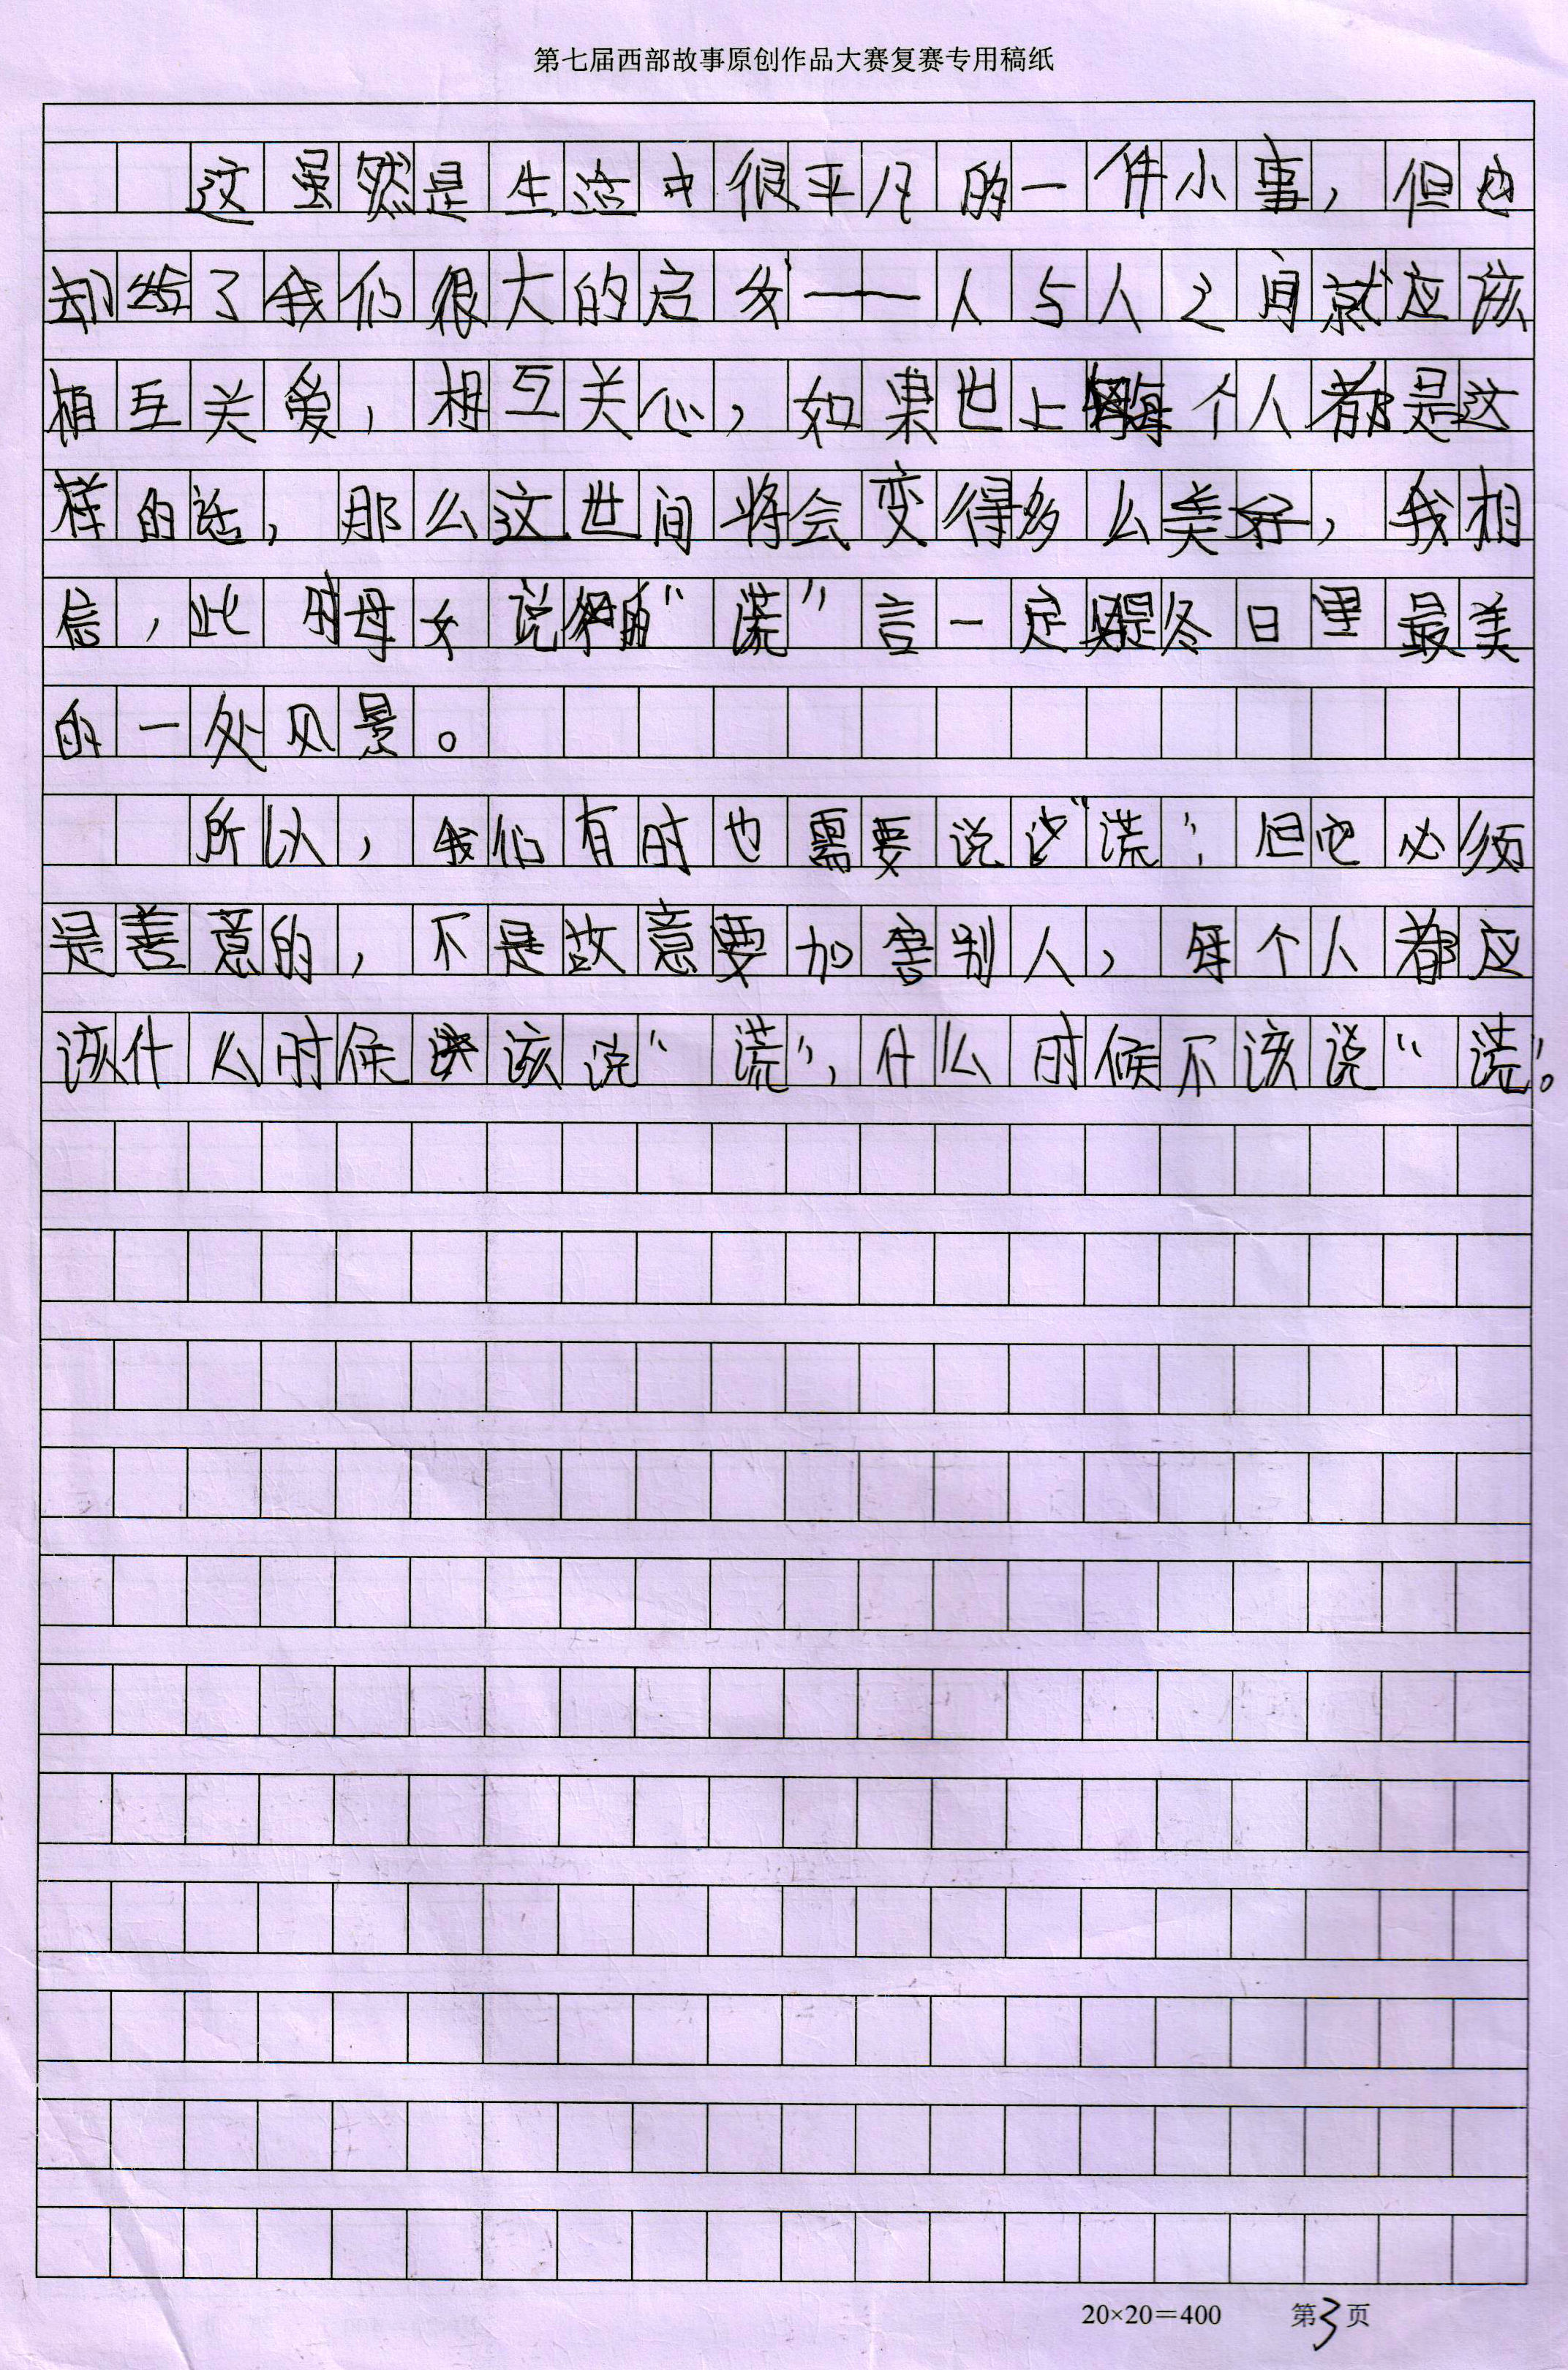 第七届西部故事原创作品大赛复赛专用稿纸
这虽然是生活中很平凡的一件小事，但也
却给了我们很大的启发——人与人之间就应该
相互关爱，相互关心，如果世上每个人都是这
样的话，那么这世间将会变得多么美好，我相
信，此时母女说的“谎”言一定是冬日里最美
的一处风景。
所以，我们有时也需要说说“谎”，但它必须
是善意的，不是故意要加害别人，每个人都应
该什么时候该说“谎”，什么时候不该说“谎”。
20×20＝400 第3页